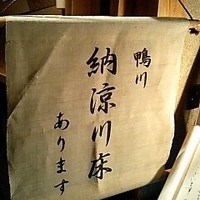 鴨川
納涼川床
あります